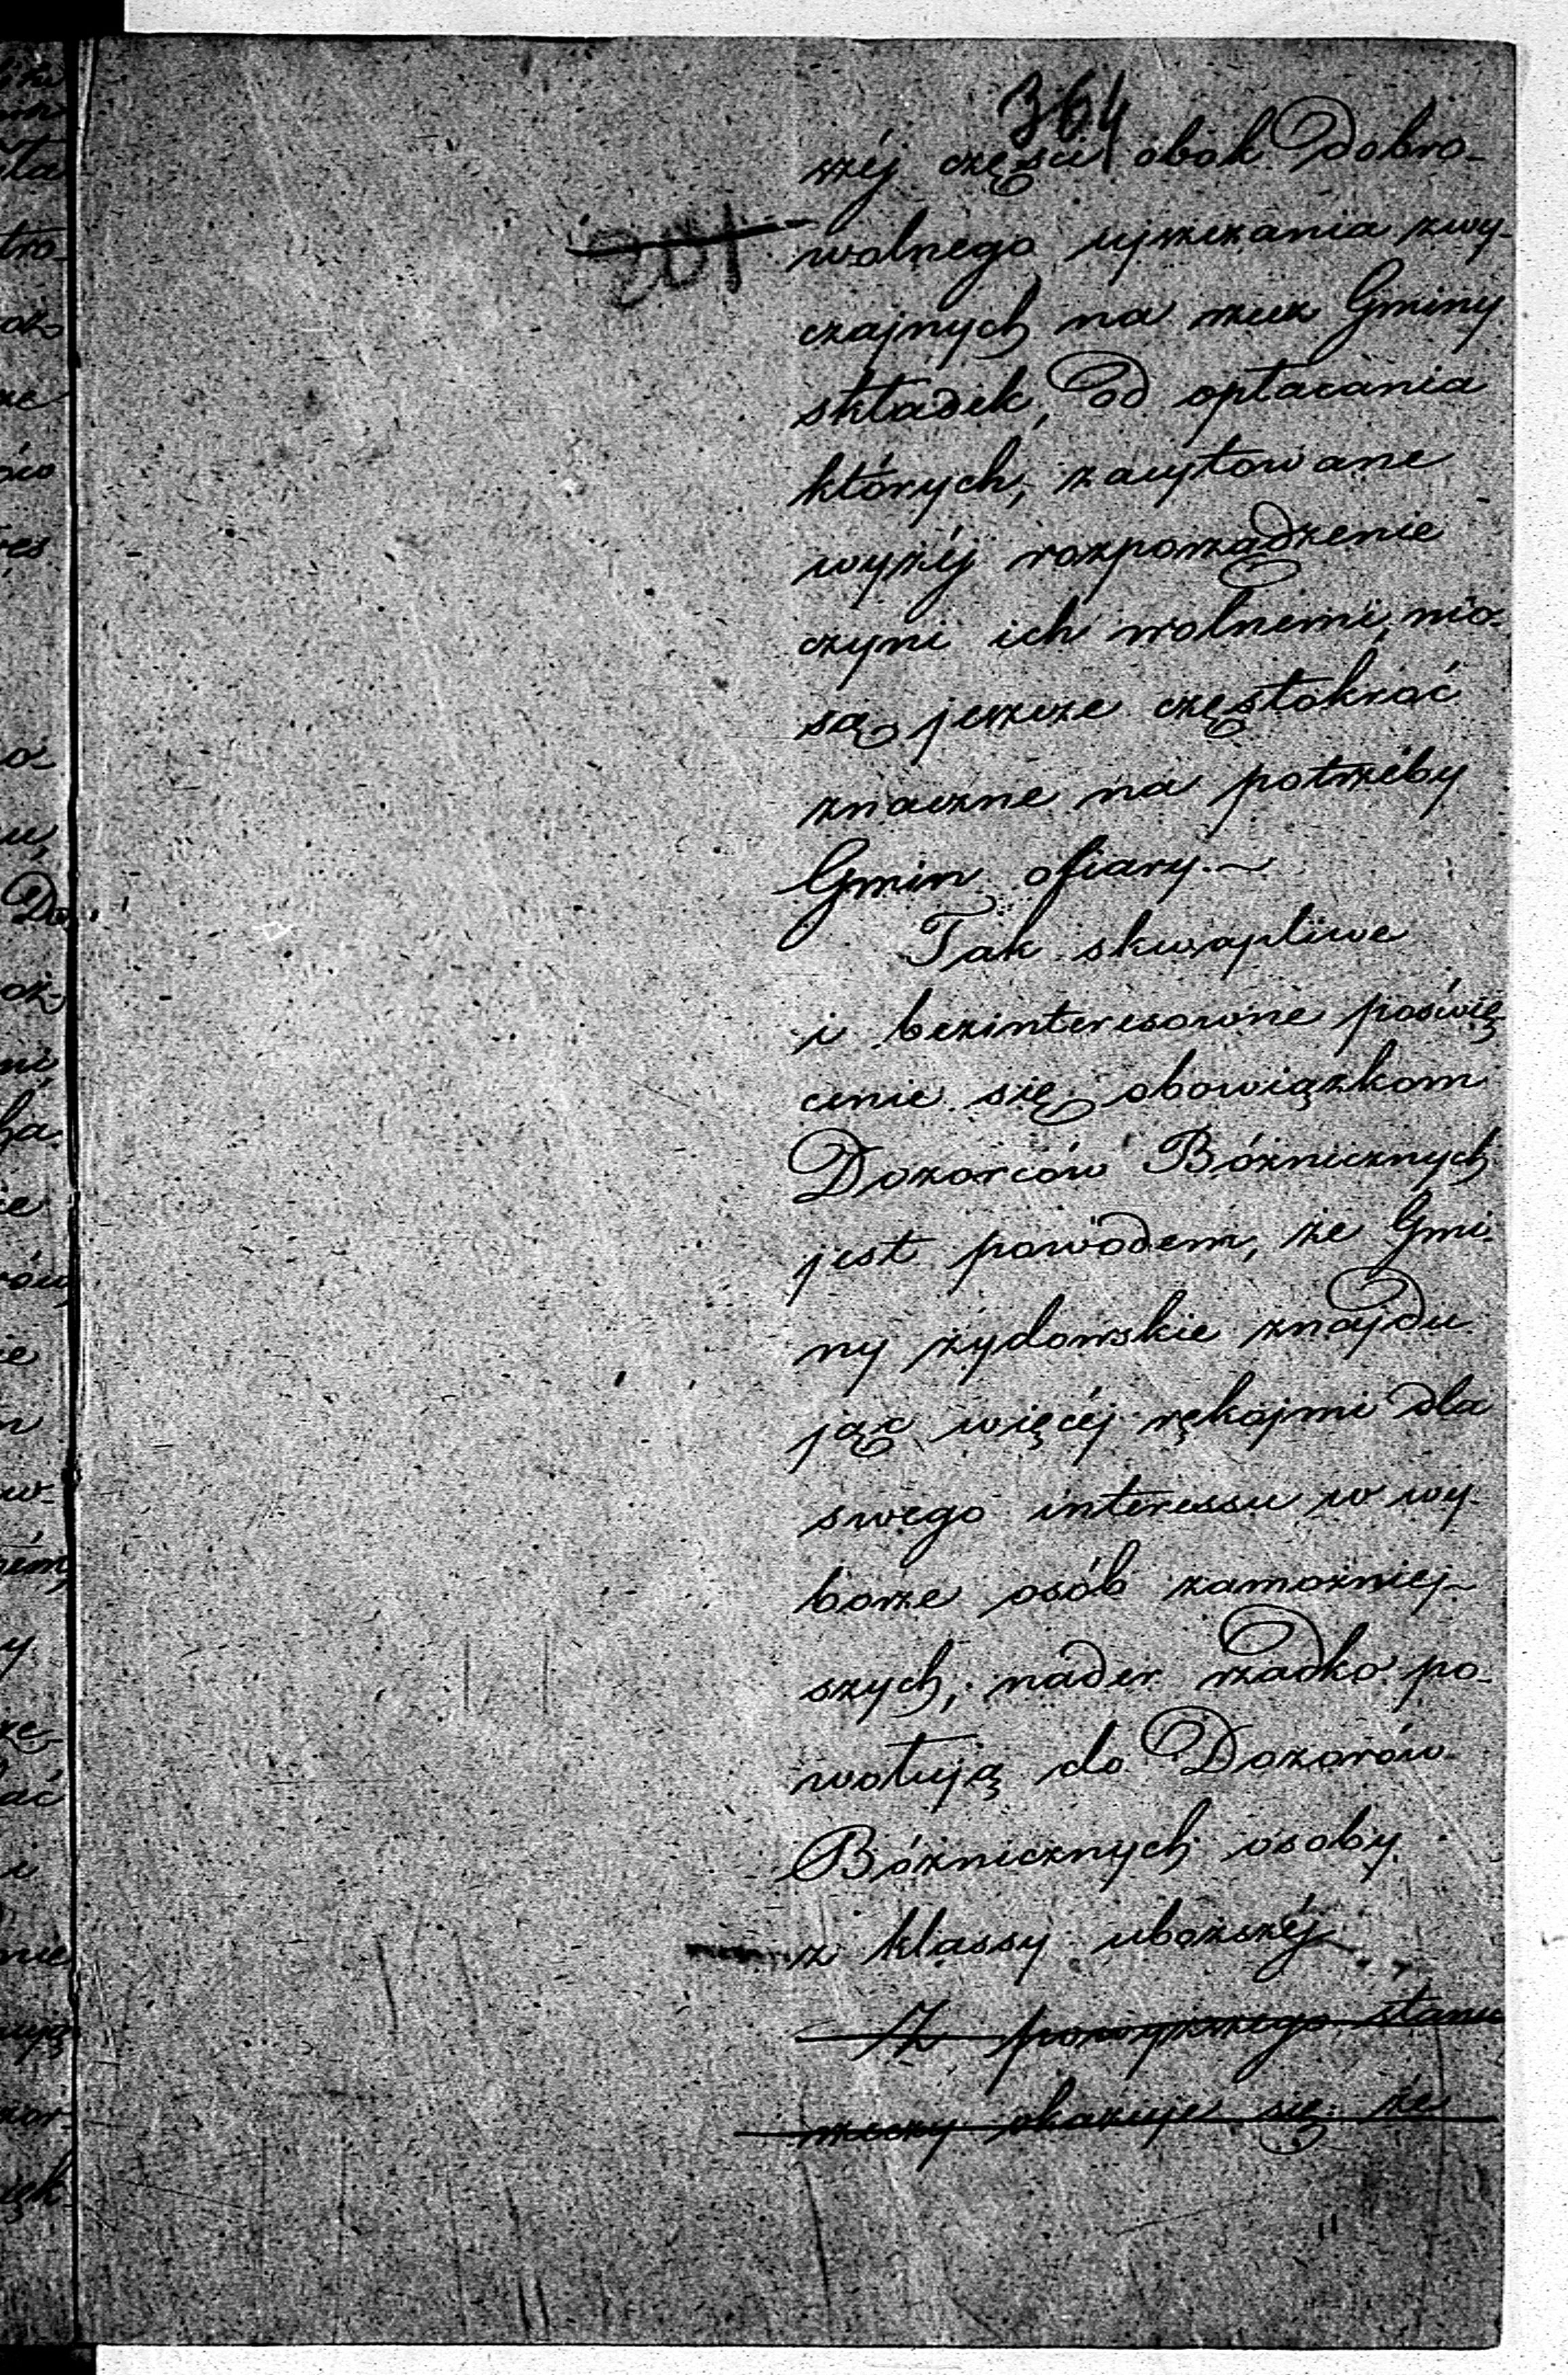 364
széj części obok dobro-
201
wolnego ujszczania zwy-
czajnych na rzecz Gminy
składek, od opłacania
których, zacytowane
wyżéj rozporządzenie
czyni ich wolnemi, nio-
są jeszcze częstokroć
znaczne na potrzeby
Gmin ofiary.~
Tak skwapliwe
i bezinteresowne poświę-
cenie się obowiązkom
Dozorców Bóżnicznych
jest powodem, że Gmi-
ny żydowskie znajdu
jąc więcéj rękojmi dla
swego interessu w wy-
borze osób zamożniej-
szych, nader rzadko po-
wołują do Dozorów
Bóżnicznych osoby
z klassy uboższéj
Z powyższego stanu
rzeczy okazuje się że